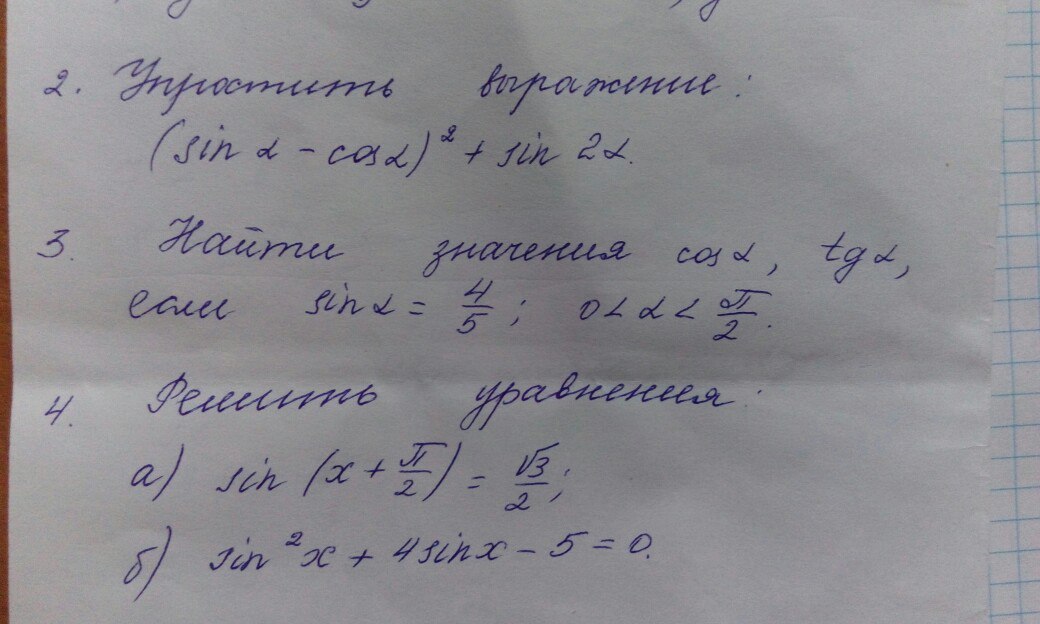 2. Упростить выражение:
(sin α - cos α)² + sin 2α.
3. Найти значения cos α, tg α,
если sin α = 4/5; 0 < α < π/2.
4. Решить уравнения:
а) sin (x + π/2) = √3/2;
б) sin²x + 4 sin x - 5 = 0.